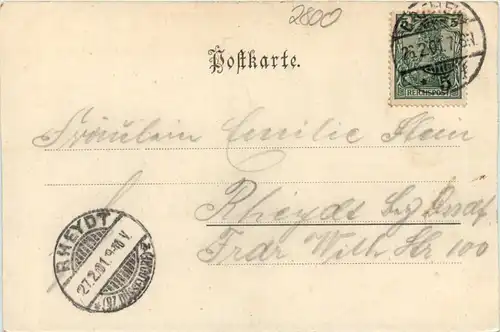 2800
5
REICHSPOST
26.2.01. 7-8N
Postkarte.
Fräulein Emilie Stein
Rheydt Bez Dssdf
Frdr Wilh Str 100
RHEYDT
27.2.01.9-10V.
* (BZ. DÜSSELDORF) *